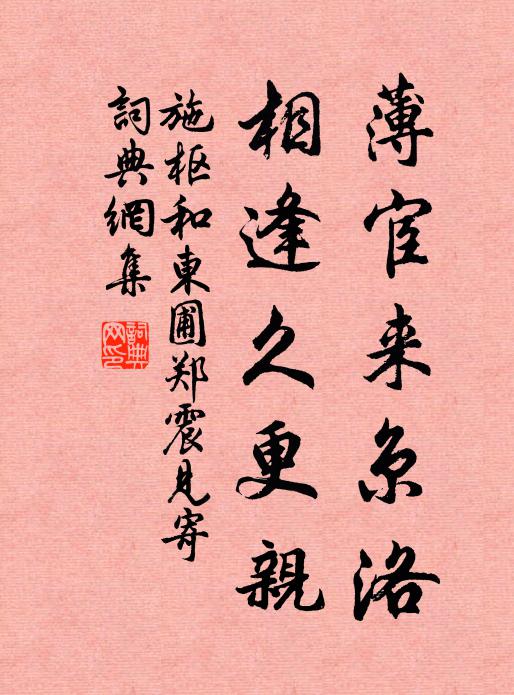 薄宦来京洛
相逢久更親
施枢和東圃郑震見寄
詞典網集
詞典网印